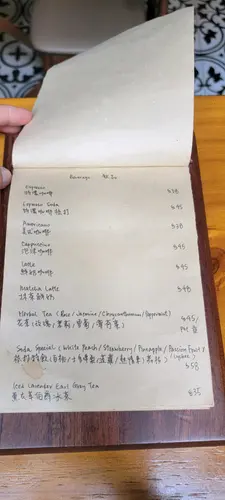 Beverage
Espresso $28
特濃咖啡
Espresso Soda $45
特濃咖啡梳打
Americano $38
美式咖啡
Cappuccino $45
泡沫咖啡
Latte $45
鮮奶咖啡
Matcha Latte $48
抹茶鮮奶
Herbal Tea (Rose / Jasmine / Chrysanthemum / Peppermint) $45/
花茶 (玫瑰 / 茉莉 / 菊花 / 薄荷葉) Pot 壺
Soda Special (White Peach / Strawberry / Pineapple / Passion Fruit /
特別梳打飲 (白桃 / 士多啤梨 / 菠蘿 / 熱情果 / 荔枝) (Lychee)
$58
Iced Lavender Earl Grey Tea $35
薰衣草伯爵冰茶